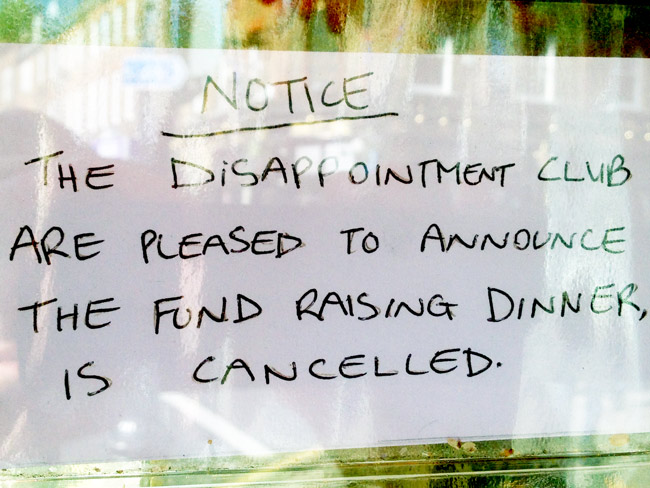 NOTICE
THE DiSAPPOINTMENT CLUB
ARE PLEASED TO ANNOUNCE
THE FUND RAISING DINNER,
IS CANCELLED.